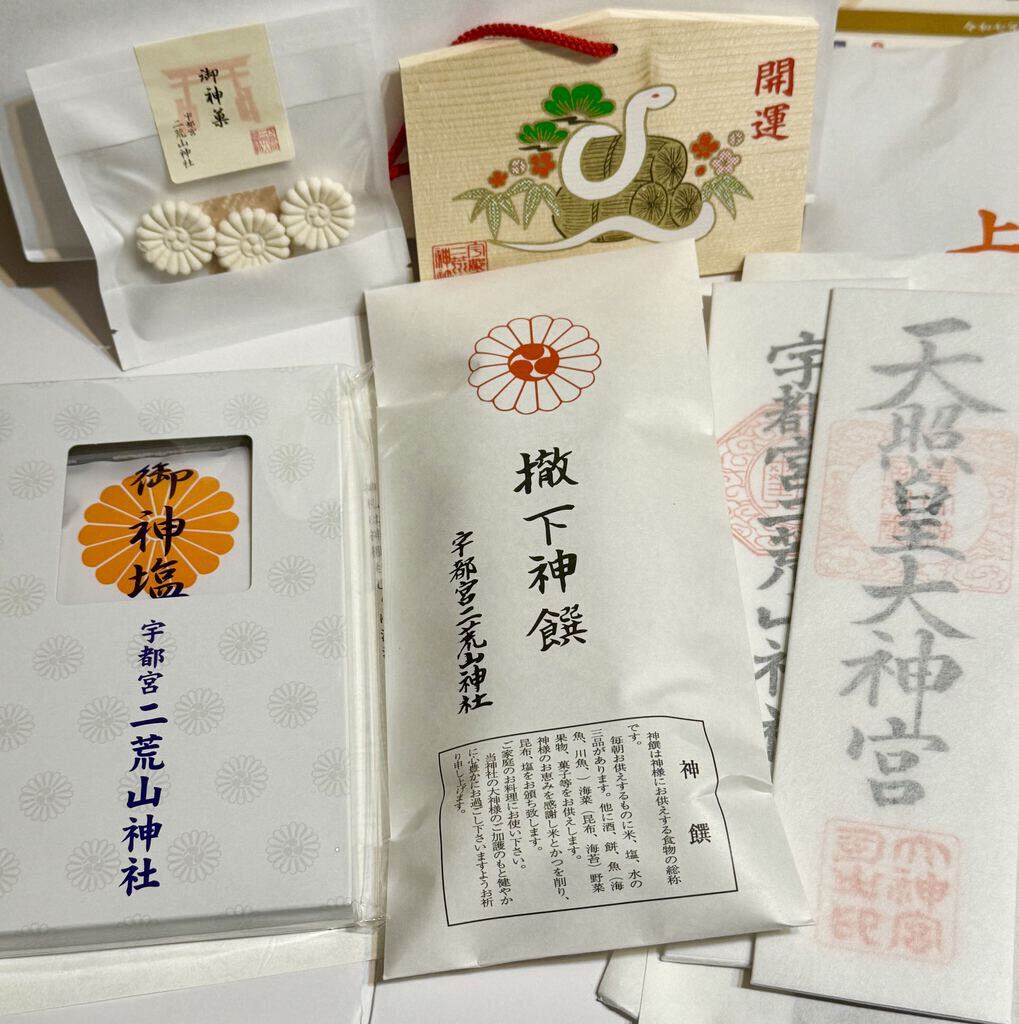 御神菓
宇都宮
二荒山神社
開運
上
御神塩
宇都宮 二荒山神社
撤下神饌
宇都宮二荒山神社
神饌
神饌は神様にお供えする食物の総称
です。
毎朝お供えするものに米、塩、水の
三品があります。他に酒、餅、魚（海
魚、川魚、）海菜（昆布、海苔）野菜
果物、菓子等をお供えします。
神様のお恵みを感謝し米とかつを削り、
昆布、塩をお頒ち致します。
ご家庭のお料理にお使い下さい。
当神社の大神様のご加護のもと健やか
に心豊かにお過ごし下さいますようお祈
り申し上げます。
宇都宮二荒山神社
天照皇大神宮